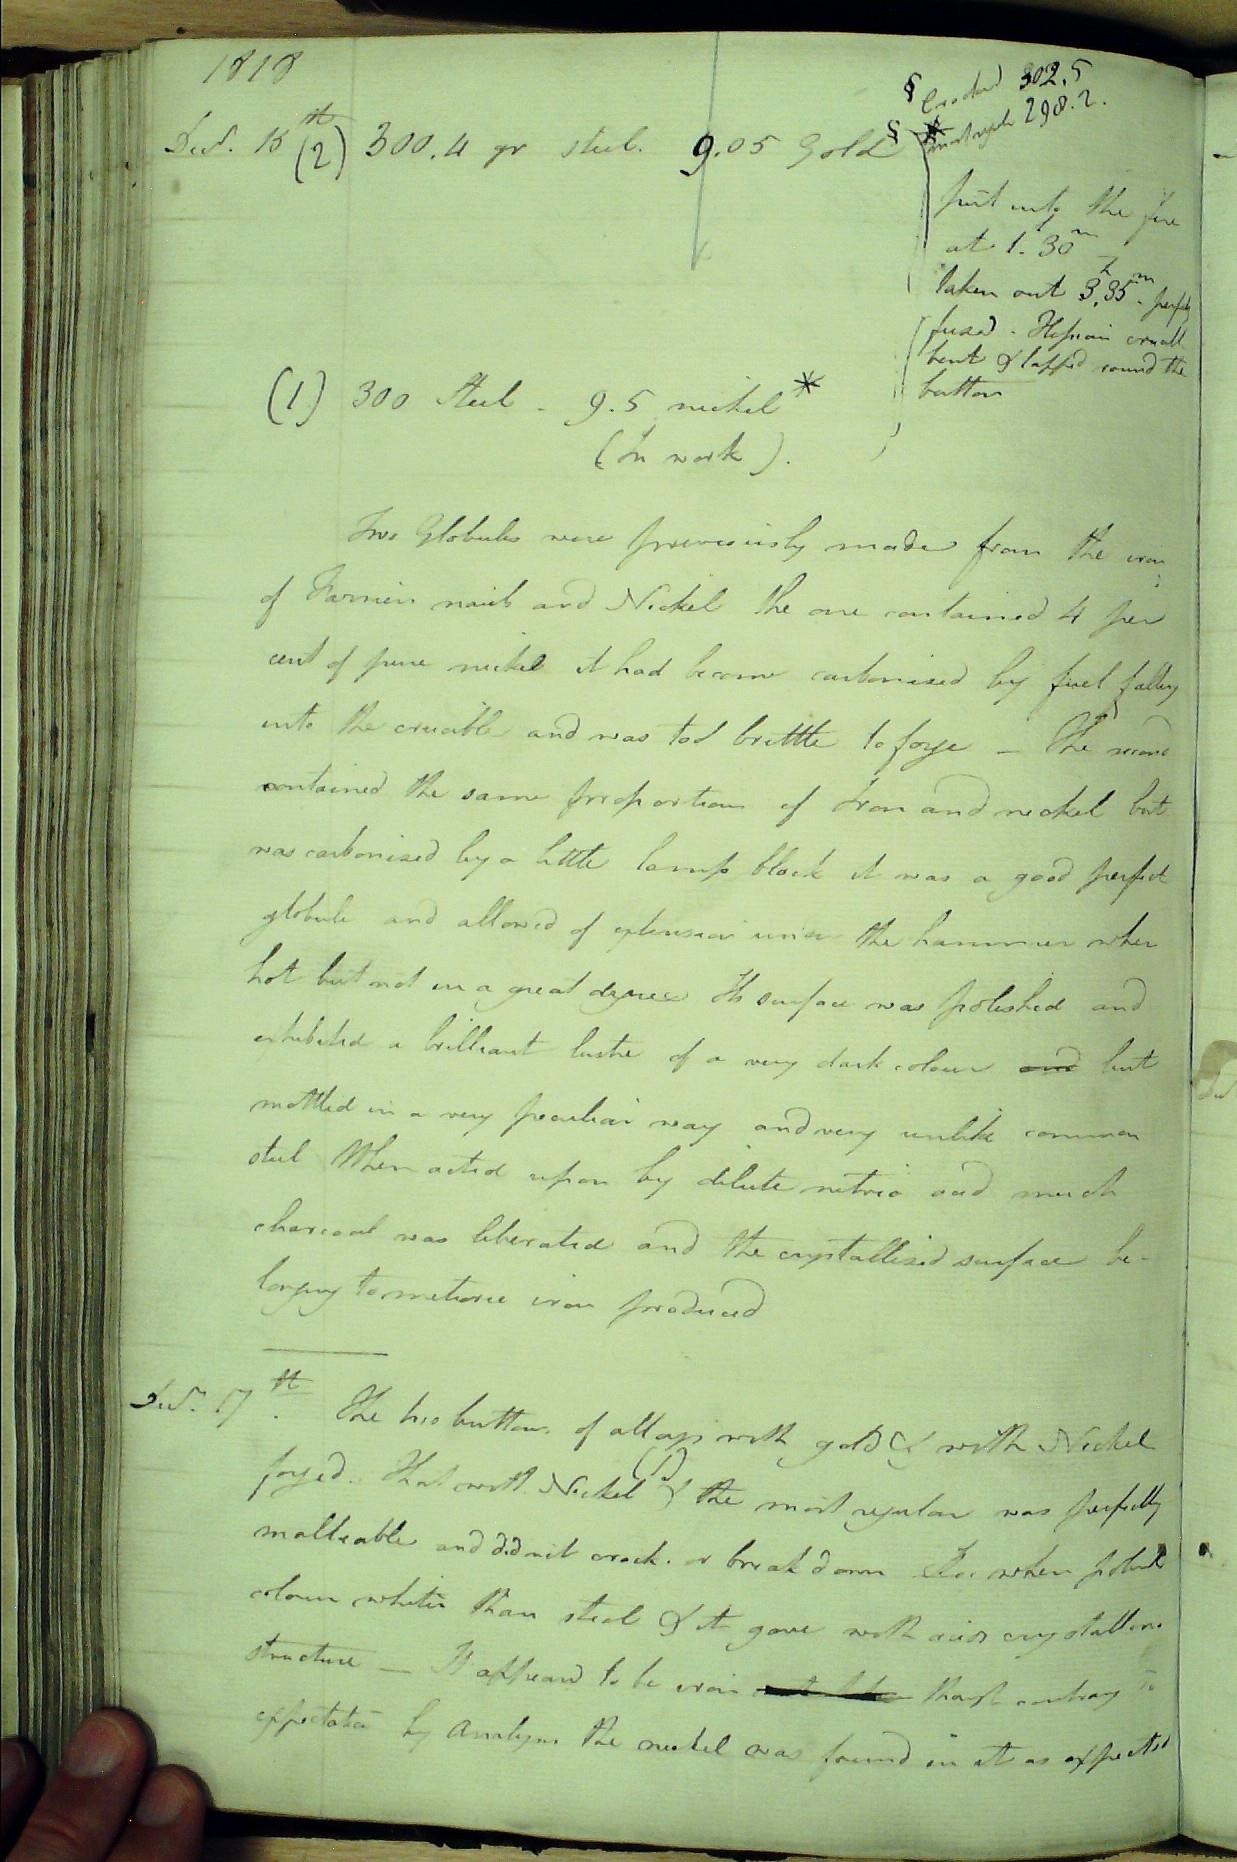 1818
Decr. 15th (2) 300.4 gr steel. 9.05 Gold §
§ Crooked 302.5
most regular 298.2.
put into the fire
at 1. 30m
taken out 3h.35m. perfectly
fused. Hessian crucible
bent & lapped round the
button
(1) 300 Steel - 9.5 nickel *
(In work).
Two Globules were previously made from the iron
of Farriers nails and Nickel the one contained 4 per
cent of pure nickel it had become carbonised by fuel falling
into the crucible and was too brittle to forge — The second
contained the same proportions of Iron and nickel but
was carbonised by a little lamp black it was a good perfect
globule and allowed of extension under the hammer when
hot but not in a great degree Its surface was polished and
exhibited a brilliant lustre of a very dark colour and but
mottled in a very peculiar way and very unlike common
steel When acted upon by dilute nitric acid much
charcoal was liberated and the crystallised surface be-
longing to meteoric iron produced
Decr. 17th. The two buttons of alloys with gold & with Nickel
forged. That with Nickel (1) & the most regular was perfectly
malleable and did not crack or break down when polished
colour whiter than steel & it gave with acids crystalline
structure — It appeared to be iron though contrary to
expectation by Analysis the nickel was found in it as expected